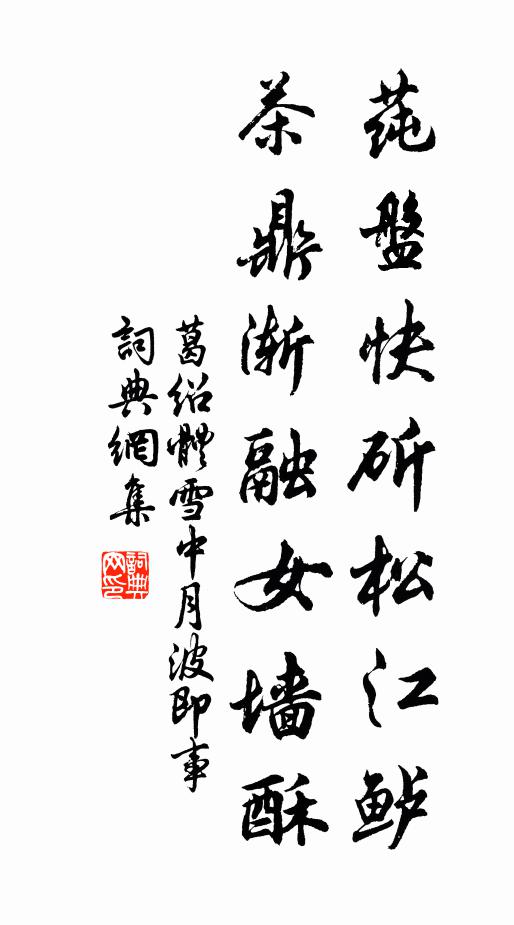 莼盤快斫松江鲈
茶鼎渐融女墙酥
葛绍體雪中月波即事
詞典網集
詞典網印